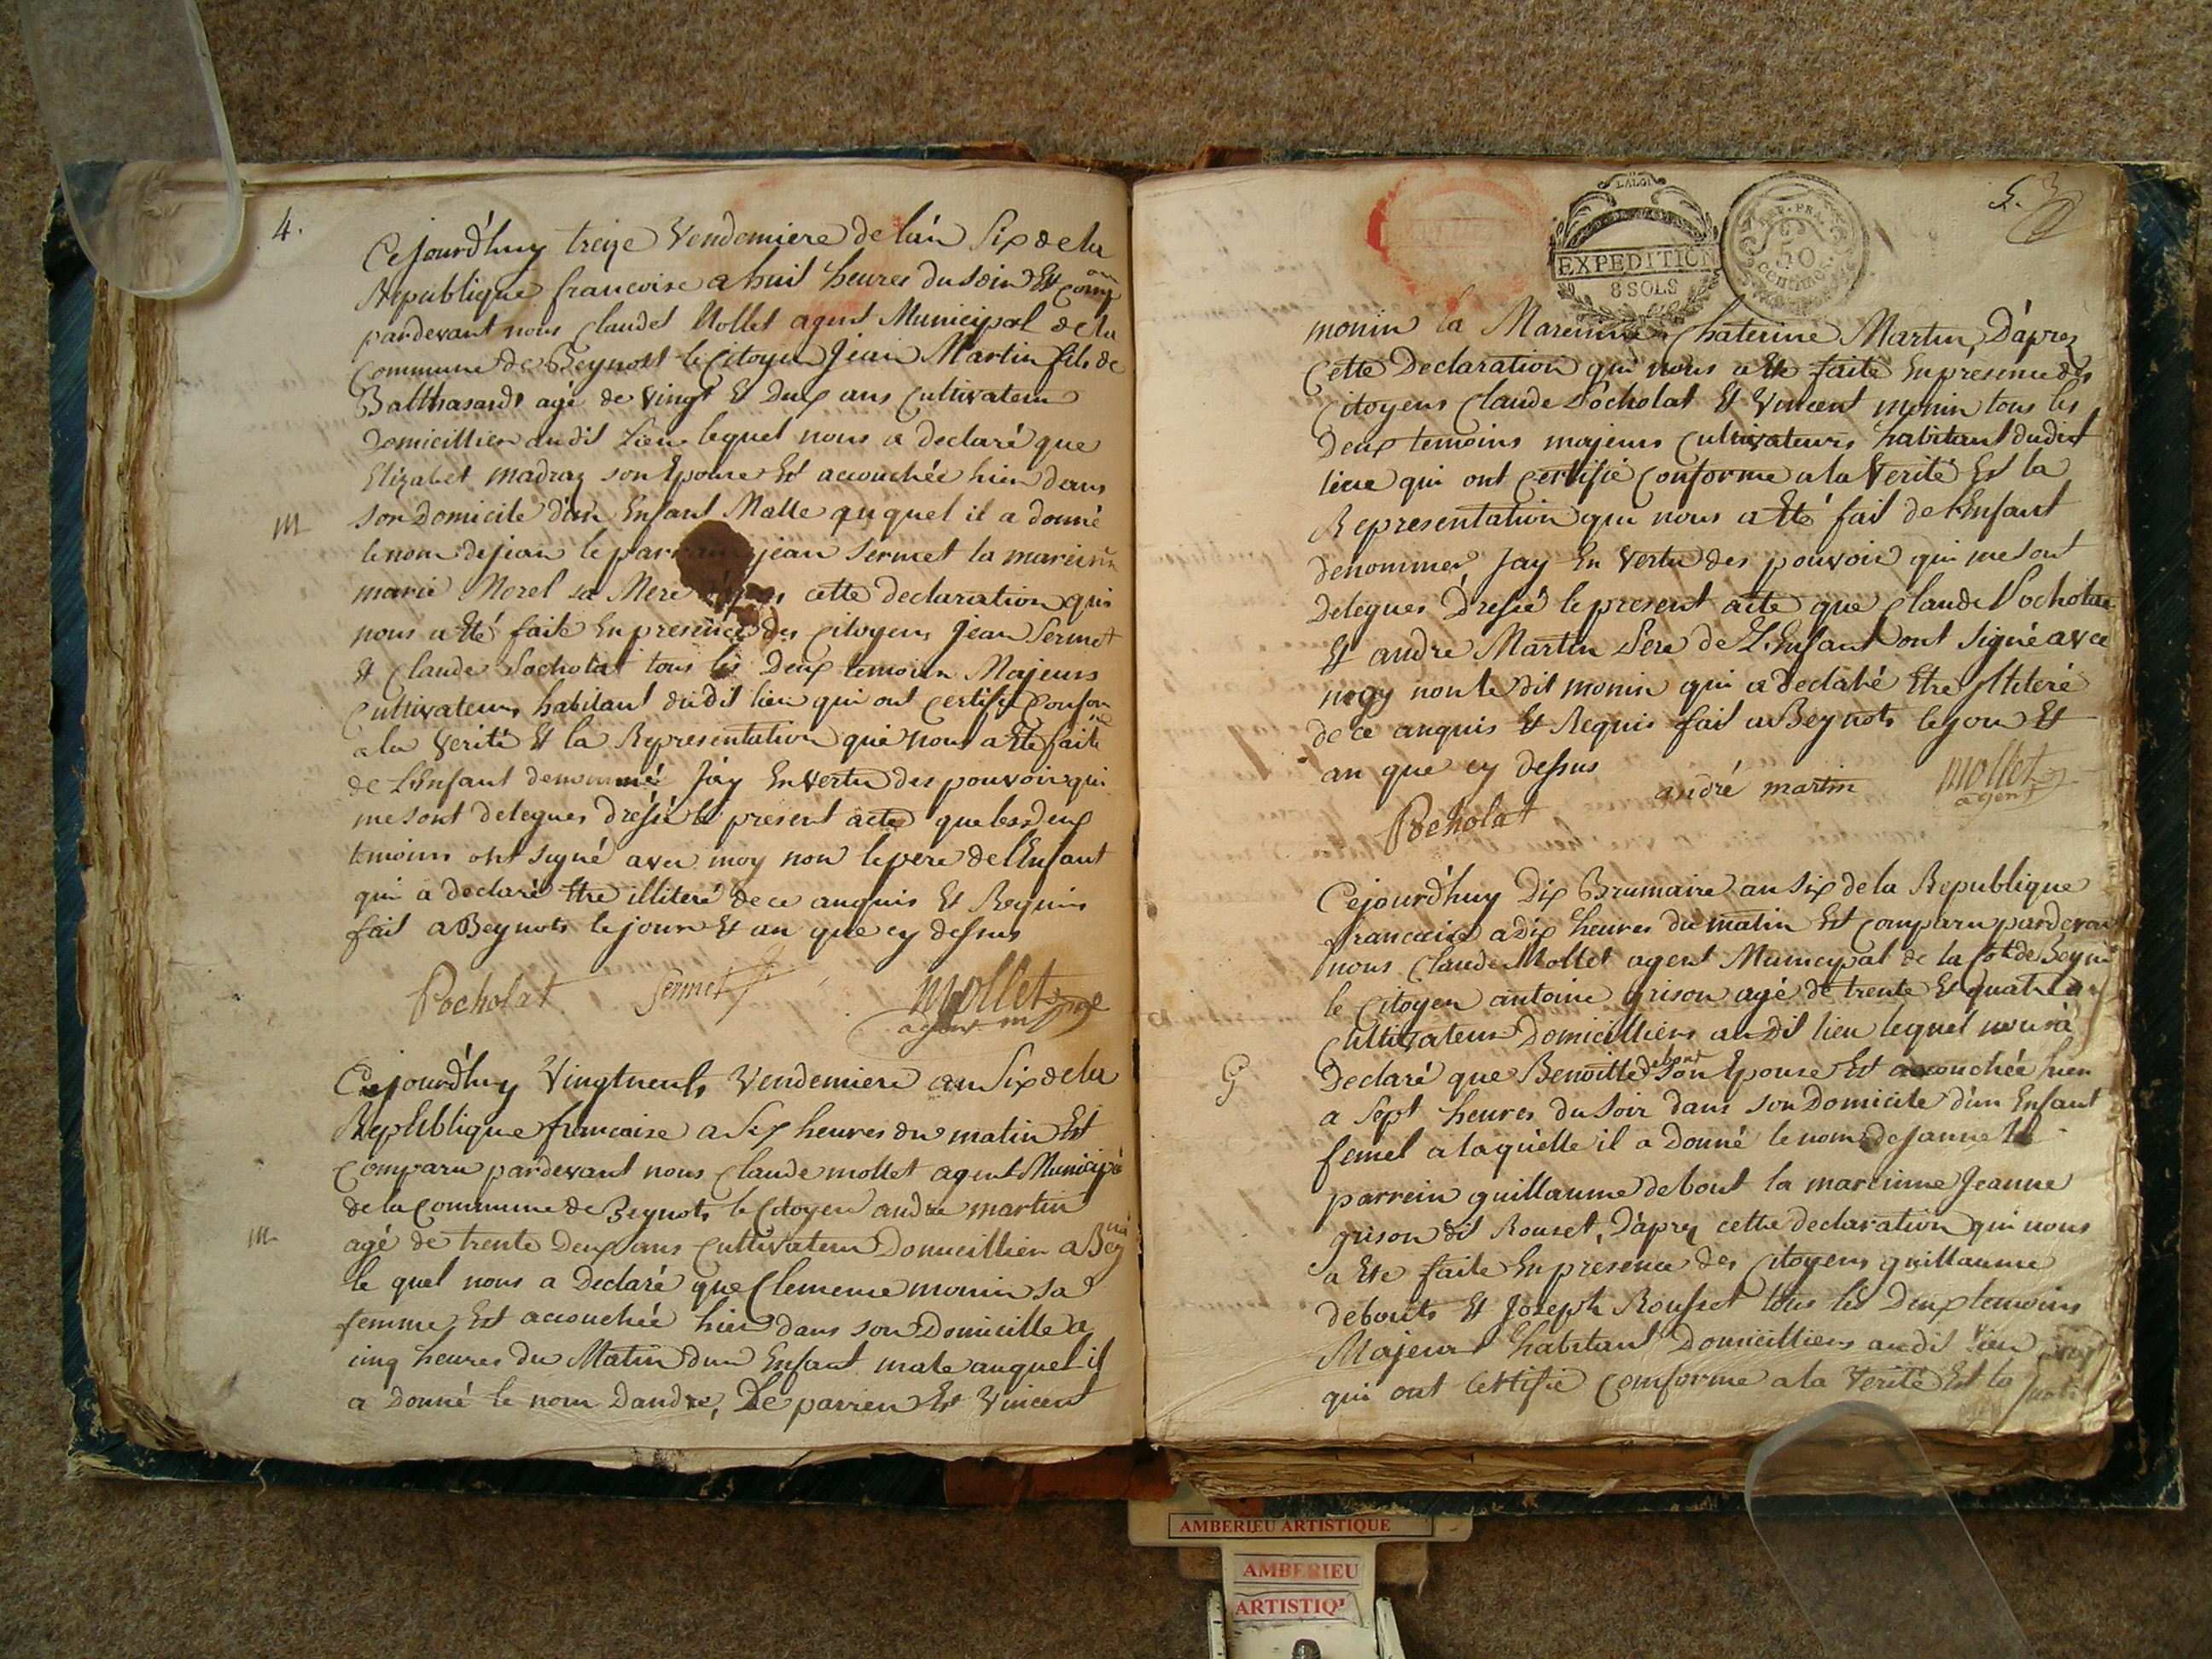 4.
Cejourd'huy treize Vendemiere de l'án Six de la
Republique francoise a huit heures du soir Est comp
pardevant nous Claudet Mollet agent Municipal de la
Commune de Beynost le Citoyen Jean Martin fils de
Balthasard agé de vingt Et deux ans Cultivateur
Domicillier audit Lieu lequel nous a declaré que
Elizabet madraz son Epouse Est accouchée hier dans
son Domicile d'un Enfant Malle auquel il a donné
m
le nom de jean le parrain jean Sermet la mareine
marie Morel sa Mere cette declaration qui
nous a Eté faite En presence des Citoyens Jean Sermet
Et Claude Pocholat tous les Deux temoin Majeurs
Cultivateurs habitant du dit lieu qui ont Certifié Confor
a la Verité Et la Representation qui nous a Eté faite
de L'Enfant denommé Jáy En Vertu des pouvoir qui
me sont delegues dressé le present acte que les deux
temoins ont signé avec moy non le pere de l'Enfant
qui a declaré Etre illiteré de ce anquis Et Requis
fait a Beynots le jour Et an que cy dessus
Pocholat Sermet mollet
agent m
Cejourd'huy Vingtneuf Vendemiere an Six de la
Republique francaise a Six heures du matin Est
Comparu pardevant nous Claude mollet agent Municip
de la Commune de Beynots le Citoyen andre martin
m
agé de trente Deux ans Cultivateur Domicillier a Bey
le quel nous a Declaré que Clemence monin sa
femme Est accouchée hier dans son Domicille a
cinq heures du Matin dun Enfant male auquel il
a Donné le nom Dandre, Le parrein Est Vincent
5.
LA LOI
EXPEDITION
8 SOLS
REP. FRA.
50
centimes
monin la Mareinne Chaterine Martin, D'áprez
Cette Declaration qui nous a Ete faite En presence des
Citoyens Claude Pocholat Et Vincent monin tous les
Deux temoins majeurs Cultivateurs habitant dudit
lieu qui ont Certifié Conforme a la Verité Est la
Representation qui nous a Eté fait de l'Enfant
denommer Jay En Vertu des pouvoir qui me sont
Delegues Dressé le present acte que Claude Pocholat
Et andre Martin Pere de L'Enfant ont Signé avec
moy non le dit monin qui a declaré Etre illiteré
de ce anquis Et Requis fait a Beynots le jour Et
an que cy dessus
andré martin mollet
agent
Pocholat
Cejourd'huy Dix Brumaire an Six de la Republique
francaise a dix heures du matin Est Comparu pardevant
nous Claude Mollet agent Municypal de la de Beyn
le Citoyen antoine grison agé de trente Et quatre an
Cultivateur Domicilliers au dit lieu lequel nous a
G
Declaré que Benoitte debout son Epouse Est accouchée hier
a Sept heures du Soir dans son Domicile d'un Enfant
femel a laquelle il a Donné le nom de Janne le
parrein guillaume debout la mareinne Jeanne
grison dit Rouset, D'aprez cette declaration qui nous
a Ete faite En presence des Citoyens guillaume
debouts Et Joseph Rousset tous les Deux temoins
Majeurs habitant Domicilliers audit lieu
qui ont Certifié Comforme a la Verité Est la
AMBERIEU ARTISTIQUE
AMBERIEU
ARTISTIQ